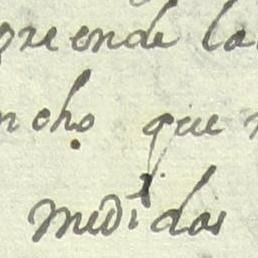 prende la
ncho que
medidas